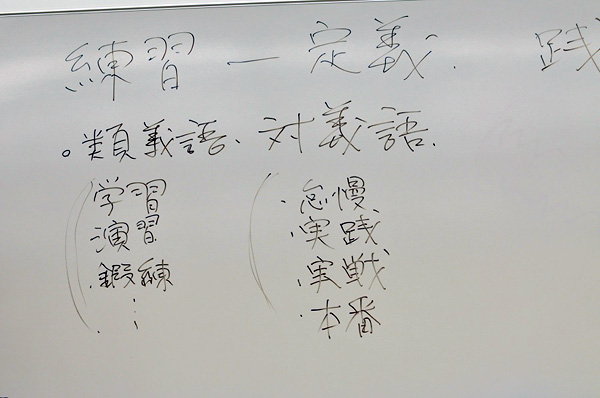 練習 ― 定義. 践
。類義語、対義語.
(学習
演習
.鍛練
. ⋮
(・怠慢
・実践
・実戦
・本番